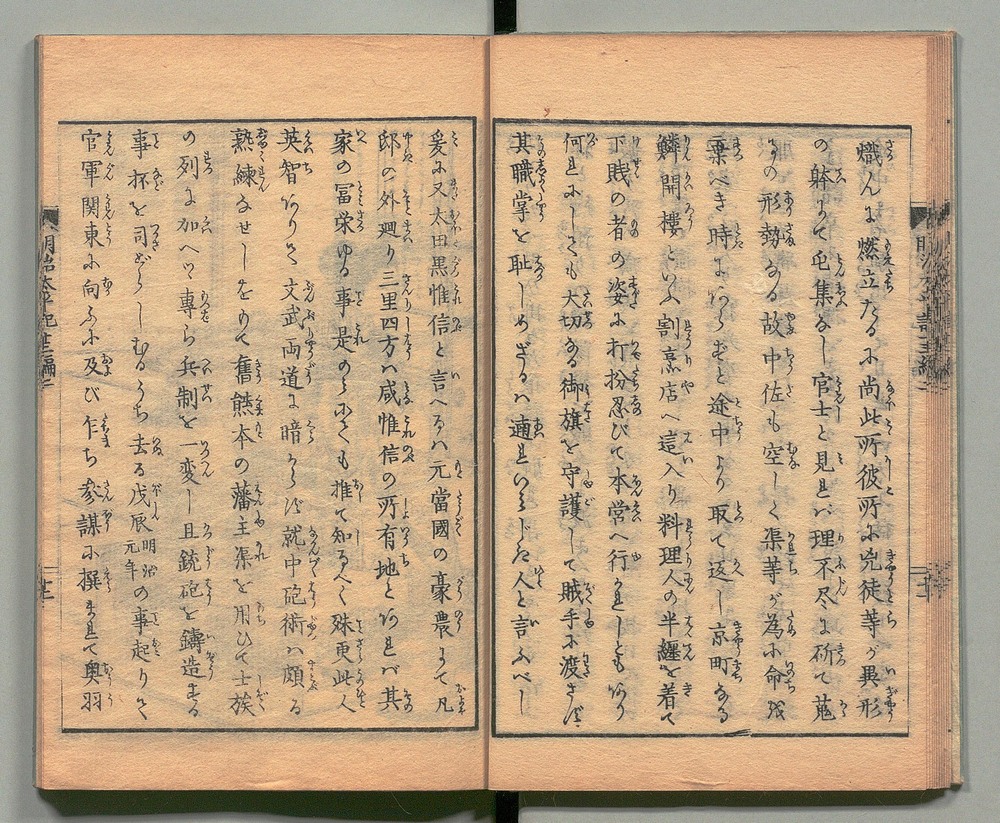 熾んに燃立たるに尚此所彼所に兇徒等が異形
の躰にて屯集なし官士と見れバ理不尽に斫て
の形勢なる故中佐も空しく渠等が為に命を
棄べき時にあらずと途中より取て返し京町なる
鱗開樓といふ割烹店へ這入り料理人の半纏を着て
下賎の者の姿に打扮忍びて本営へ行かれしともあり
何れにしても大切なる御旗を守護して賊手に渡さず
其職掌を恥しめざるハ適れいみじき人と言ふべし
爰に又大田黒惟信と言へるハ元當國の豪農にて凡
邸の外廻り三里四方ハ咸惟信の所有地とあれバ其
家の冨栄ゆる事是のミにても推て知るべく殊更此人
英智ありて文武両道に暗からず就中砲術ハ頗る
熟練なせしをもて舊熊本の藩主渠を用ひて士族
の列に加へて専ら兵制を一変し且銃砲を鑄造する
事抔を司どらしむるうち去る戊辰明治元年の事起りて
官軍関東に向ふに及び乍ち参謀に撰まれて奥羽
明治太平記十三編二